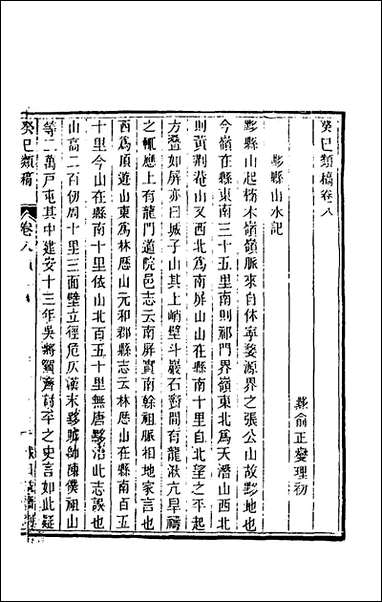 癸巳類稿卷八
黟俞正燮理初
黟縣山水記
黟縣山起楠木嶺嶺脈來自休寧婺源界之張公山故黟地也
今嶺在縣東南三十五里南則祁門界嶺東北為天潛山西北
則黃荆菴山又西北為南屏山山在縣南十里自北望之平起
方疊如屏亦曰城子山其上峭壁斗巖石對間有龍湫亢旱禱
之輒應上有龍門道院邑志云南屏實南幹祖脈相地家言也
西為頂遊山東為林歷山元和郡縣志云林歷山在縣南百五
十里今山在縣南十里依山北百五十里無唐黟治此志誤也
山高二百仞周十里三面壁立徑危仄漢末黟賊帥陳僕祖山
等二萬戶屯其中建安十三年吳將賀齊討平之史言如此疑
癸巳類稿
卷八